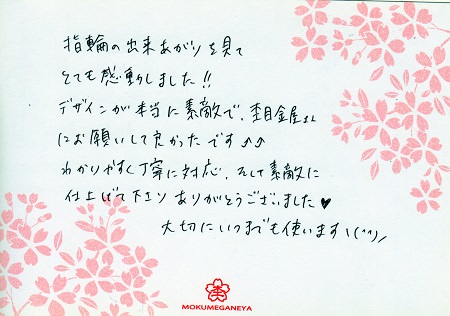 指輪の出来あがりを見て
とても感動しました!!
デザインが本当に素敵で、杢目金屋さん
にお願いして良かったです♪♪
わかりやすく丁寧に対応、そして素敵に
仕上げて下さりありがとうございました♥
大切にいつまでも使います\(^^)/
杢
MOKUMEGANEYA